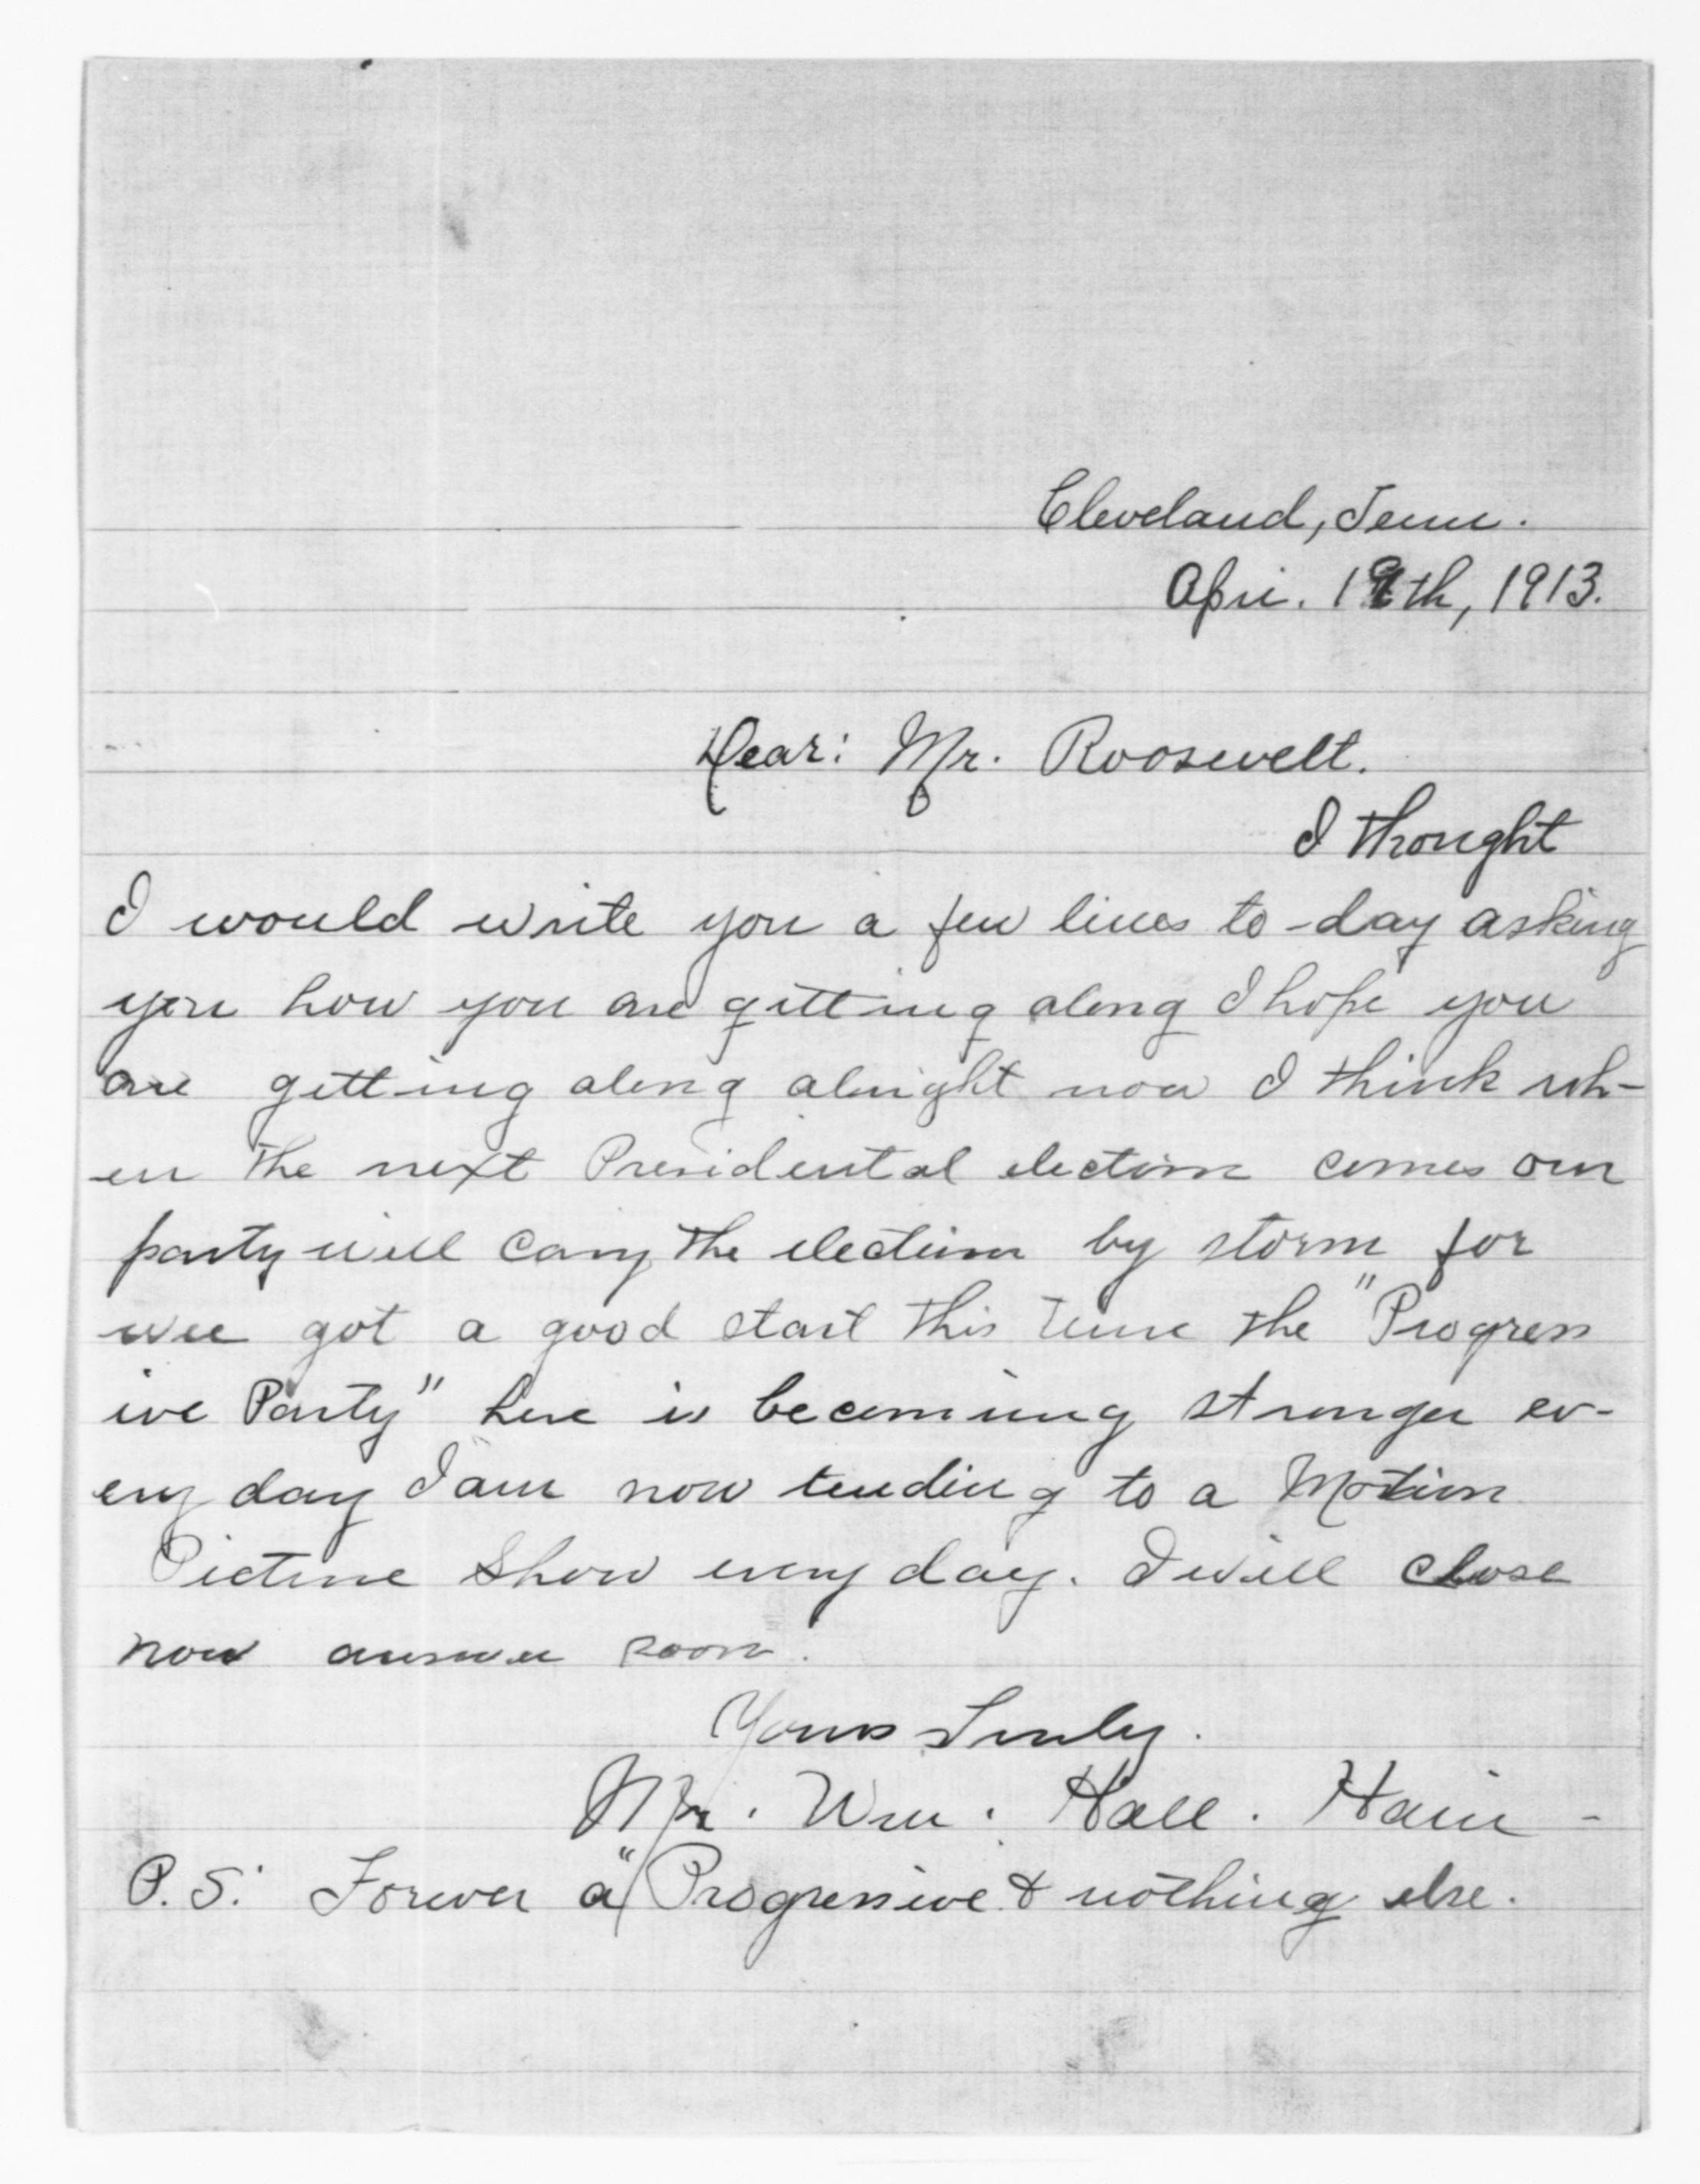 Cleveland, Tenn.
Apri. 19th, 1913.
Dear: Mr. Roosevelt.
I thought
I would write you a few lines to-day asking
you how you are getting along I hope you
are getting along alright now I think wh-
en the next Presidental election comes our
party will cary the election by storm for
wee got a good start this time the "Progress
ive Party" here is becomming stronger ev-
ery day I am now tending to a Motion
Picture Show every day. I will close
now answer soon.
Yours Truly.
Mr. Wm. Hall. Hain
P.S. Forever a "Progressive & nothing else.